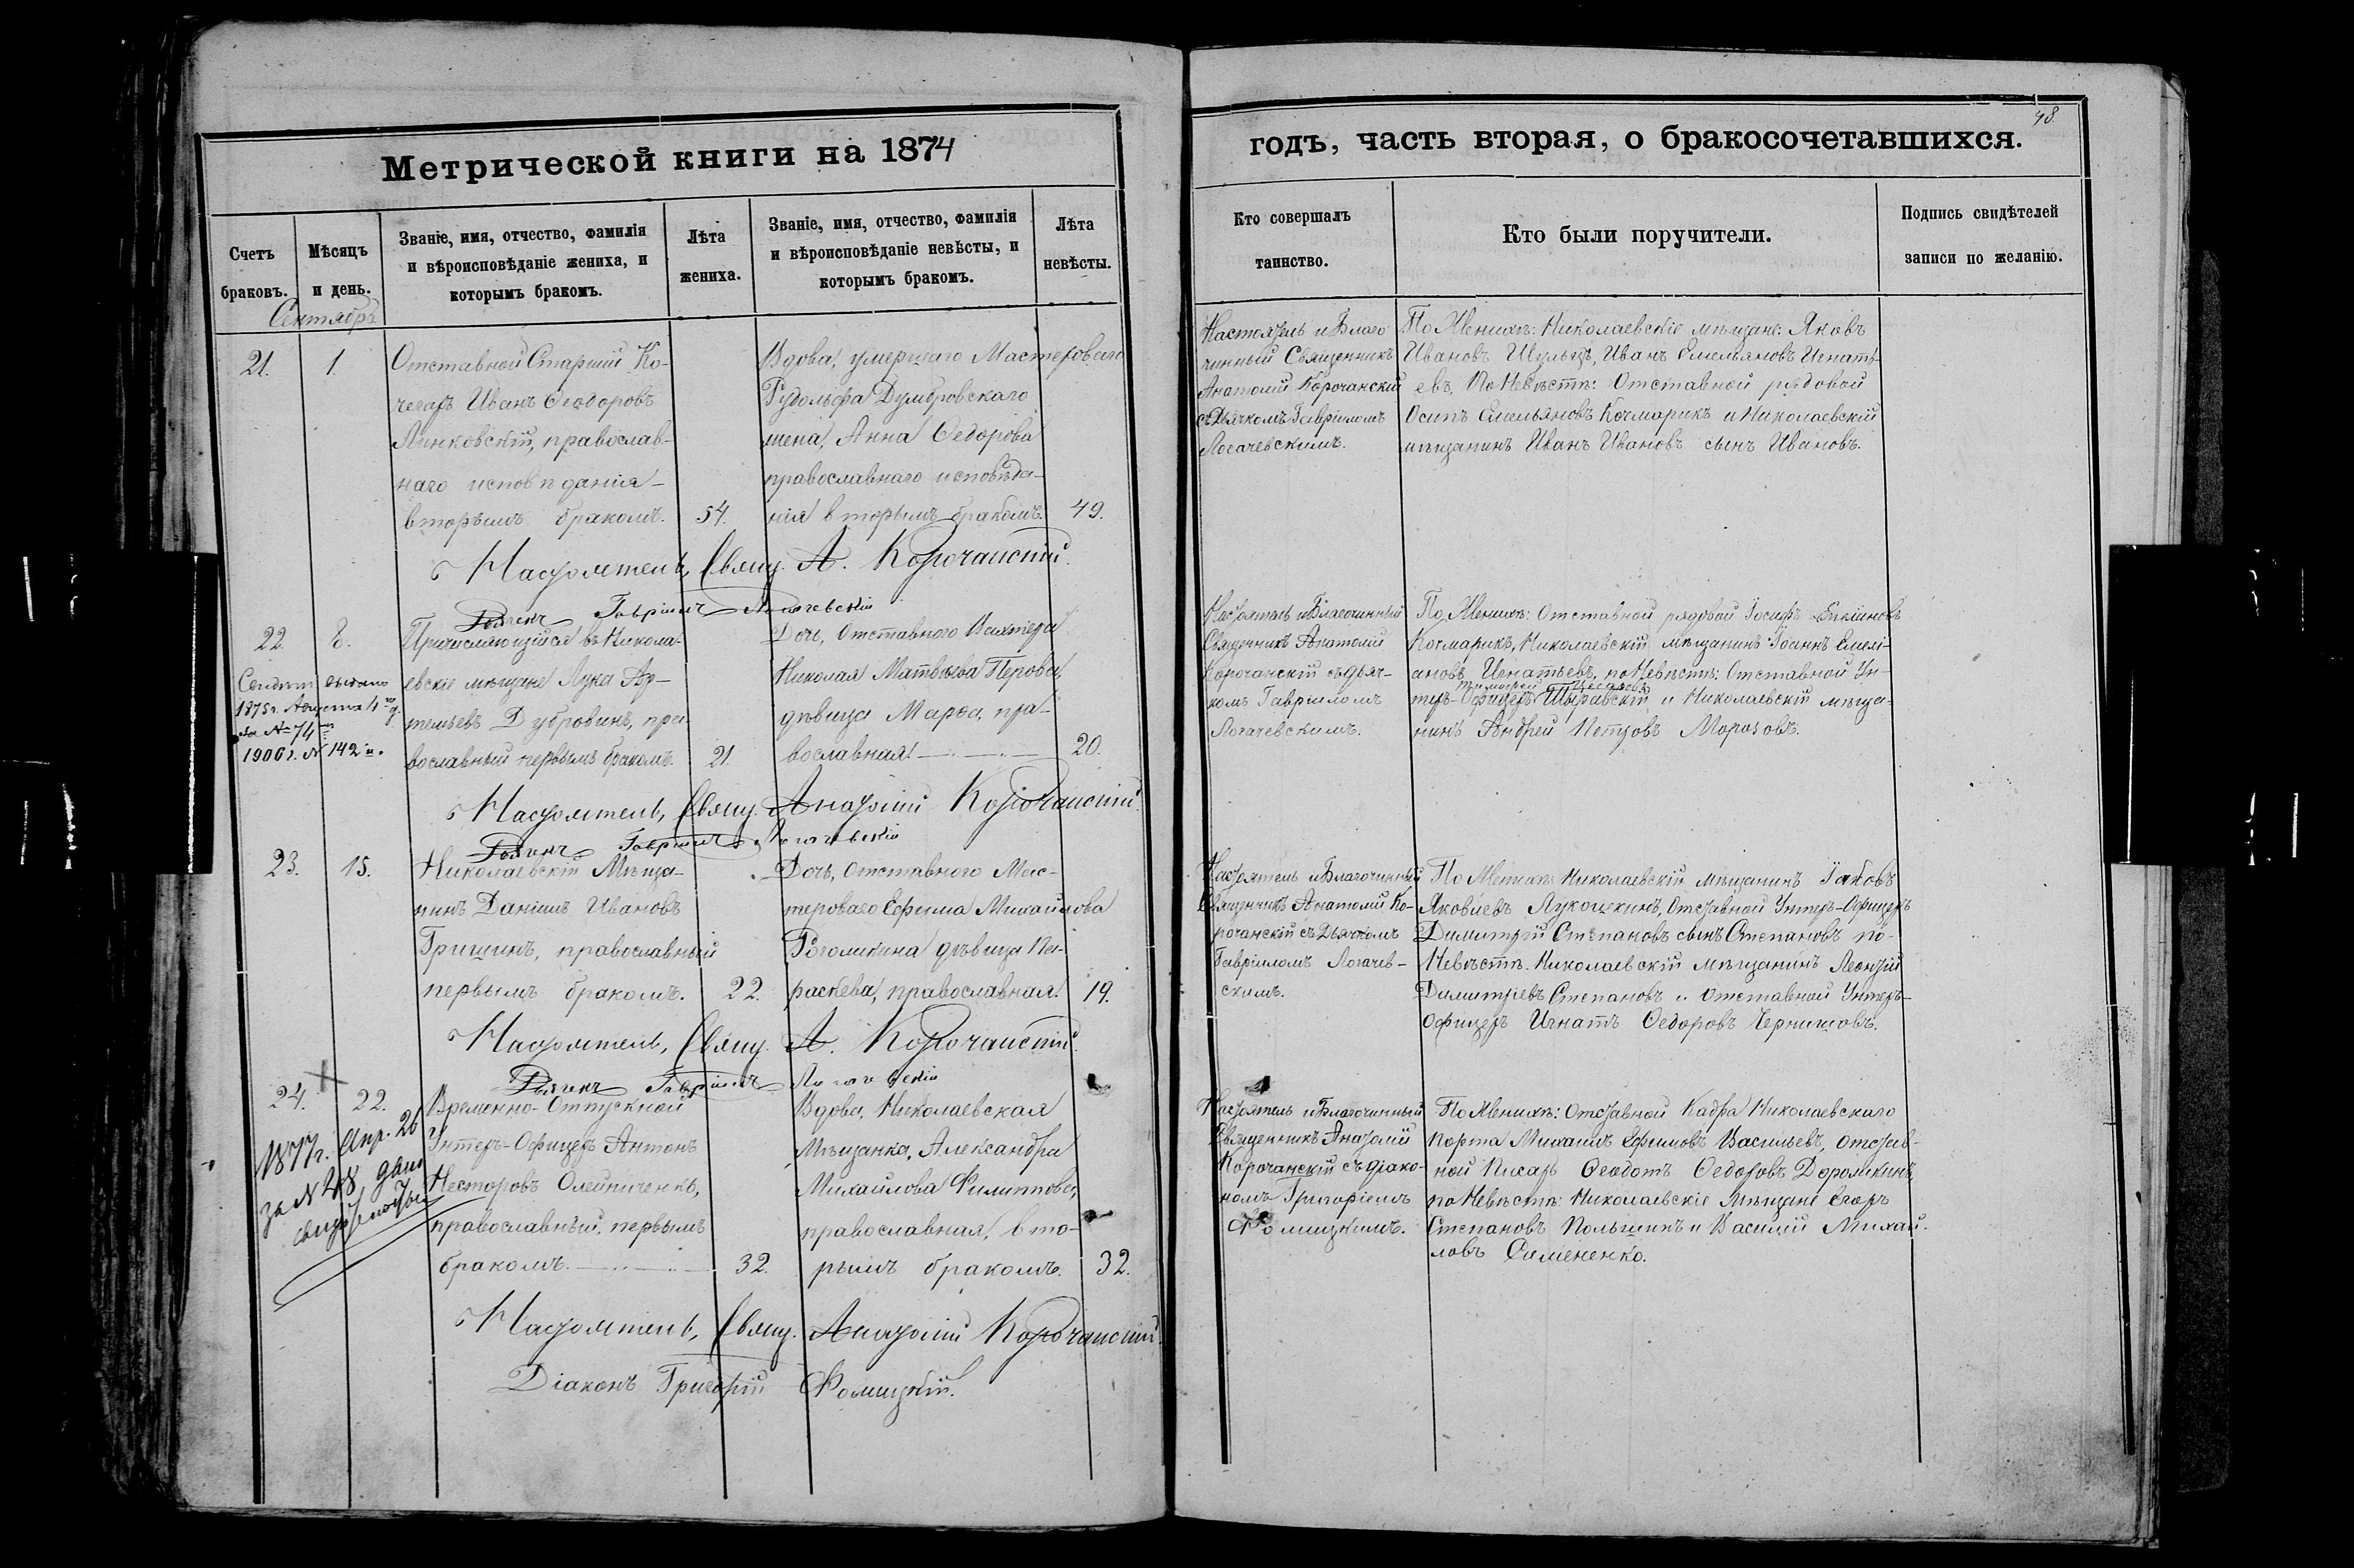 Метрической книги на 1874
Счетъ браковъ.
Мѣсяцъ и день.
Званіе, имя, отчество, фамилія
и вѣроисповѣданіе жениха, и
которымъ бракомъ.
Лѣта
жениха.
Званіе, имя, отчество, фамилія
и вѣроисповѣданіе невѣсты, и
которымъ бракомъ.
Лѣта
невѣсты.
Сентябрь
21. 1.
Отставной Старшій Ко-
чегаръ Иванъ Ѳеодоровъ
Линковскій, православ-
наго исповѣданія
вторымъ бракомъ. 54.
Вдова, умершаго Мастероваго
Рудольфа Думбровскаго
жена, Анна Ѳедорова
православнаго исповѣда-
нія вторымъ бракомъ. 49.
Настоятель, Свящ. А. Корочанскій.
Дьячекъ Гавріилъ Логачевскій
22. 8.
Причисляющійся въ Никола-
евскіе мѣщане Лука Ар-
темьевъ Дубровинъ, пра-
вославный первымъ бракомъ. 21.
1875 г. Августа 4го д.
за № 74
1906 г. № 142
Дочь, Отставного Вахтера
Николая Матвѣева Перова,
дѣвица Марѳа, пра-
вославная. 20.
Настоятель, Свящ. Анатолій Корочанскій.
Дьячекъ Гавріилъ Логачевскій
23. 15.
Николаевскій Мѣща-
нинъ Даніилъ Ивановъ
Гришинъ, православный
первымъ бракомъ. 22.
Дочь, Отставного Мас-
тероваго Ефима Михайлова
Роголикина дѣвица Па-
раскева, православная. 19.
Настоятель, Свящ. А. Корочанскій.
Дьячекъ Гавріилъ Логачевскій
24. 22.
1877 г. Апр. 26
за № 48 дано
свидѣтельство
Временно-Отпускной
Унтеръ-Офицеръ Антонъ
Несторовъ Олейниченко,
православный, первымъ
бракомъ. 32.
Вдова, Николаевская
Мѣщанка, Александра
Михайлова Филиппова,
православная, вто-
рымъ бракомъ. 32.
Настоятель, Свящ. Анатолій Корочанскій.
Діаконъ Григорій Фомицкій.
48.
годъ, часть вторая, о бракосочетавшихся.
Кто совершалъ
таинство.
Кто были поручители.
Подпись свидѣтелей
записи по желанію.
Настоятель и Благо
чинный Священникъ
Анатолій Корочанскій
съ Дьячкомъ Гавріиломъ
Логачевскимъ.
По Женихѣ: Николаевскіе мѣщане: Яковъ
Ивановъ Шульцъ, Иванъ Емельяновъ Игнатъ-
евъ, По Невѣстѣ: Отставной рядовой
Осипъ Емельяновъ Кочмарикъ и Николаевскій
мѣщанинъ Иванъ Ивановъ сынъ Ивановъ.
Настоятель и Благочинный
Священникъ Анатолій
Корочанскій съ дьяч-
комъ Гавріиломъ
Логачевскимъ.
По Женихѣ: Отставной рядовой Іосифъ
Кочмарикъ, Николаевскій мѣщанинъ Іоаннъ Емелі-
ановъ Игнатьевъ, по Невѣстѣ: Отставной Ун-
теръ-Офицеръ и Николаевскій мѣща-
нинъ Андрей Петровъ Морозовъ.
Настоятель и Благочинный
Священникъ Анатолій Ко-
рочанскій съ Дьячкомъ
Гавріиломъ Логачев-
скимъ.
По Женихѣ: Николаевскій мѣщанинъ Іаковъ
Яковлевъ Лукошкинъ, Отставной Унтеръ-Офицеръ
Димитрій Степановъ сынъ Степановъ по-
Невѣстѣ. Николаевскій мѣщанинъ Леонтій
Димитріевъ Степановъ и Отставной Унтеръ-
Офицеръ Игнатъ Ѳедоровъ Чернишовъ.
Настоятель и Благочинный
Священникъ Анатолій
Корочанскій съ діако-
номъ Григоріемъ
Фомицкимъ.
По Женихѣ: Отставной Кадра Николаевскаго
порта Михаилъ Ефимовъ Васильевъ, отстав-
ной Писарь Ѳеодотъ Ѳедоровъ Доромкинъ,
по Невѣстѣ: Николаевскіе Мѣщане Егоръ
Степановъ Польшинъ и Василій Михай-
ловъ Симененко.